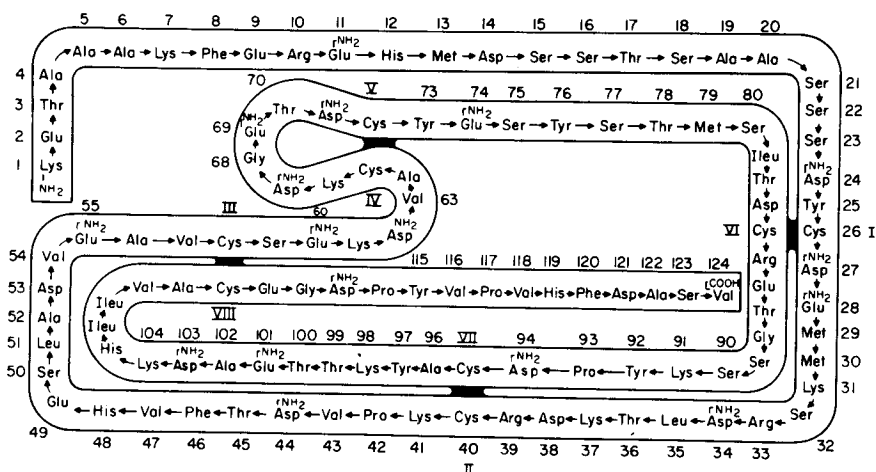 5 6 7 8 9 10 11 12 13 14 15 16 17 18 19 20
Ala → Ala → Lys → Phe → Glu → Arg → Glu → His → Met → Asp → Ser → Ser → Thr → Ser → Ala → Ala
NH2
4 Ala
3 Thr
2 Glu
1 Lys
NH2
Ser 21
Ser 22
Ser 23
NH2
Asp 24
Tyr 25
Cys 26 I
NH2
Asp 27
NH2
Glu 28
Met 29
Met 30
Lys 31
Ser 32
70 V 73 74 75 76 77 78 79 80
Thr → Asp → Cys → Tyr → Glu → Ser → Tyr → Ser → Thr → Met → Ser
NH2 NH2
69 NH2
Glu
68 Gly
Asp ← Lys ← Cys ← Ala
NH2
IV
Val 63
NH2
Asp
Ileu
Thr
Asp
VI Cys
Arg
Glu
Thr
Gly
Ser
55 III 60
NH2 NH2
Glu → Ala → Val → Cys → Ser → Glu → Lys
54 Val
53 Asp
52 Ala
51 Leu
50 Ser
49 Glu
115 116 117 118 119 120 121 122 123 124
NH2 COOH
Val → Ala → Cys → Glu → Gly → Asp → Pro → Tyr → Val → Pro → Val → His → Phe → Asp → Ala → Ser → Val
Ileu
Ileu
His
VIII VII
104 103 102 101 100 99 98 97 96 94 93 92 91 90
NH2 NH2 NH2
Lys ← Asp ← Ala ← Glu ← Thr ← Thr ← Lys ← Tyr ← Ala ← Cys ← Asp ← Pro ← Tyr ← Lys ← Ser
NH2 NH2
His ← Val ← Phe ← Thr ← Asp ← Val ← Pro ← Lys ← Cys ← Arg ← Asp ← Lys ← Thr ← Leu ← Asp ← Arg
48 47 46 45 44 43 42 41 40 39 38 37 36 35 34 33
II